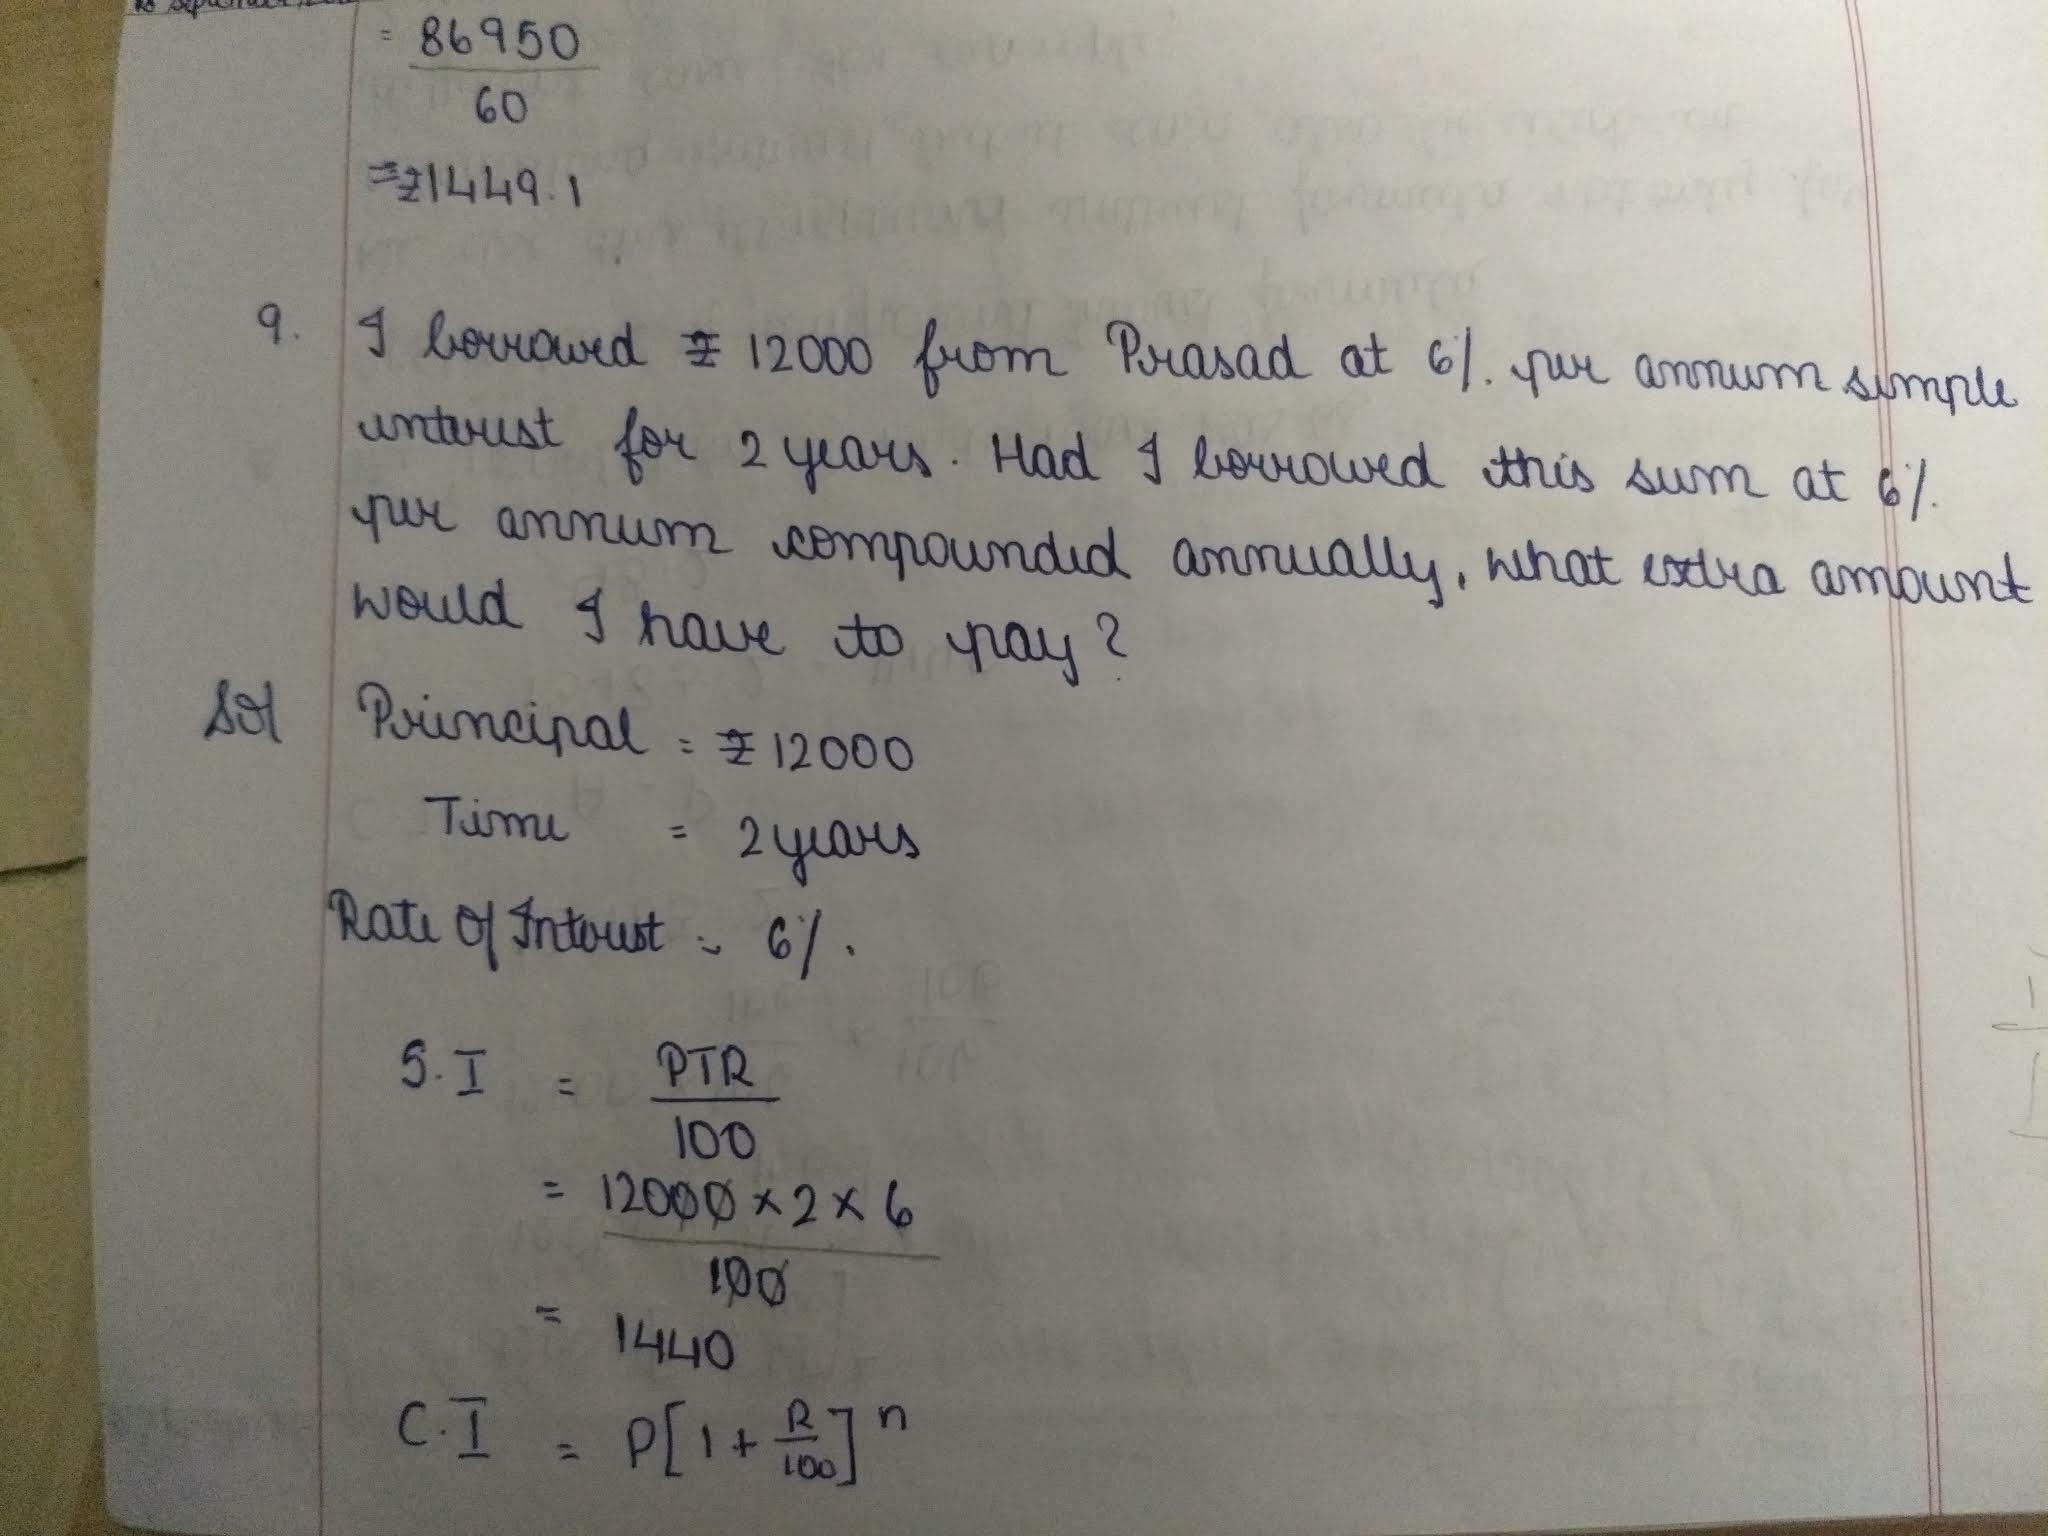 = 86950
60
= ₹1449.1
9. I borrowed ₹ 12000 from Prasad at 6%. per annum simple
interest for 2 years. Had I borrowed this sum at 6%.
per annum compounded annually, what extra amount
would I have to pay?
Sol Principal = ₹ 12000
Time = 2 years
Rate of Interest = 6%.
S.I = PTR
100
= 12000 × 2 × 6
100
= 1440
C.I = P[1 + R/100]^n